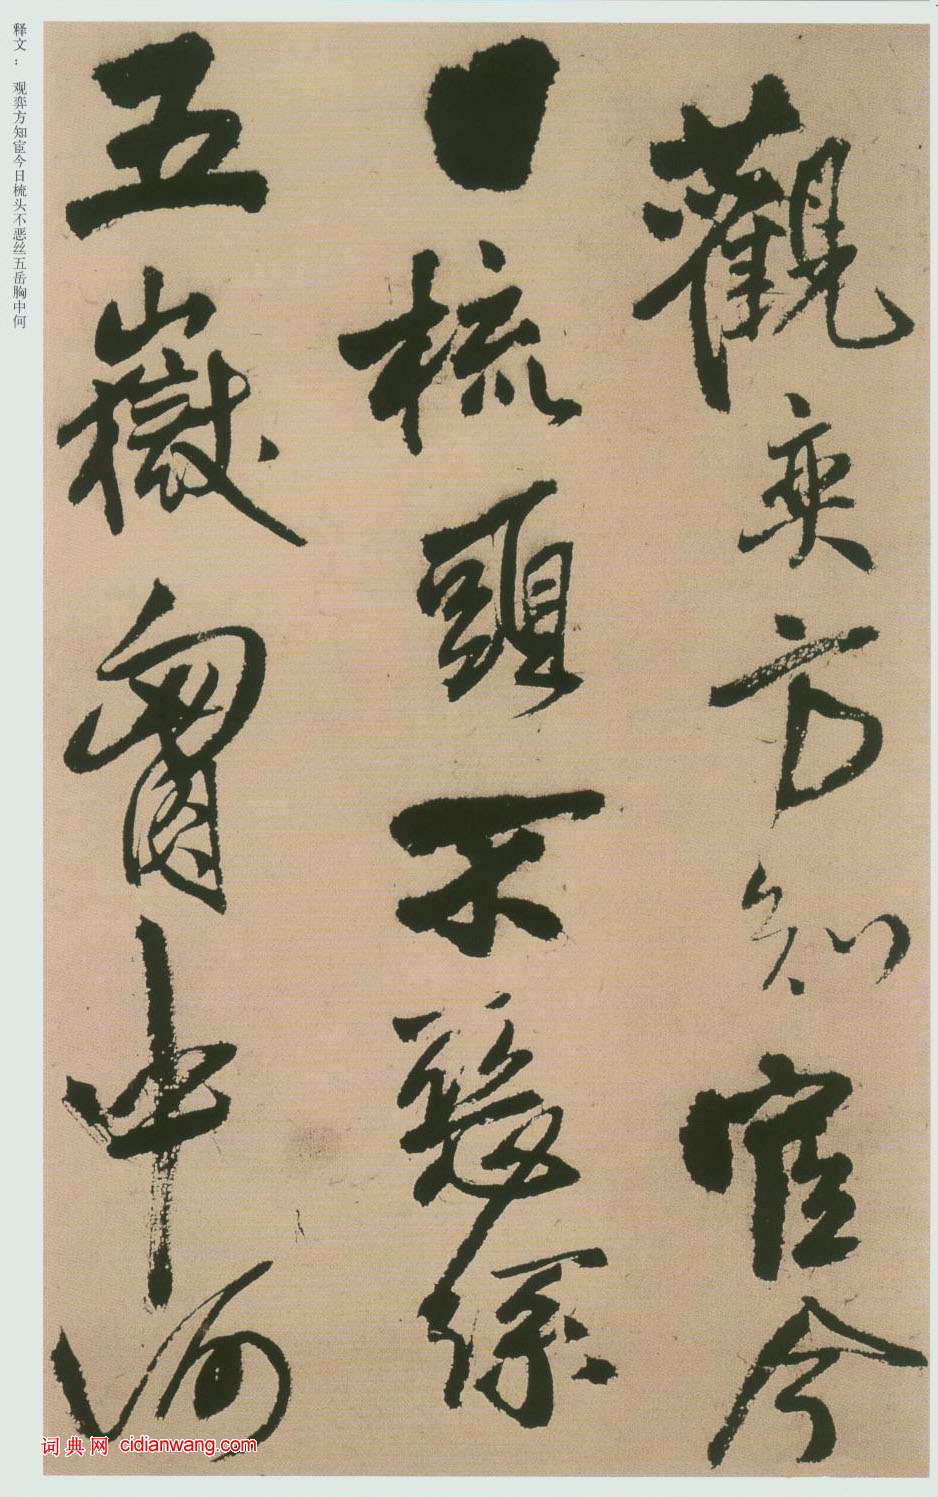 觀奕方知宦今
日梳頭不惡絲
五嶽胷中何
释文：观弈方知宦今日梳头不恶丝五岳胸中何
词典网 cidianwang.com